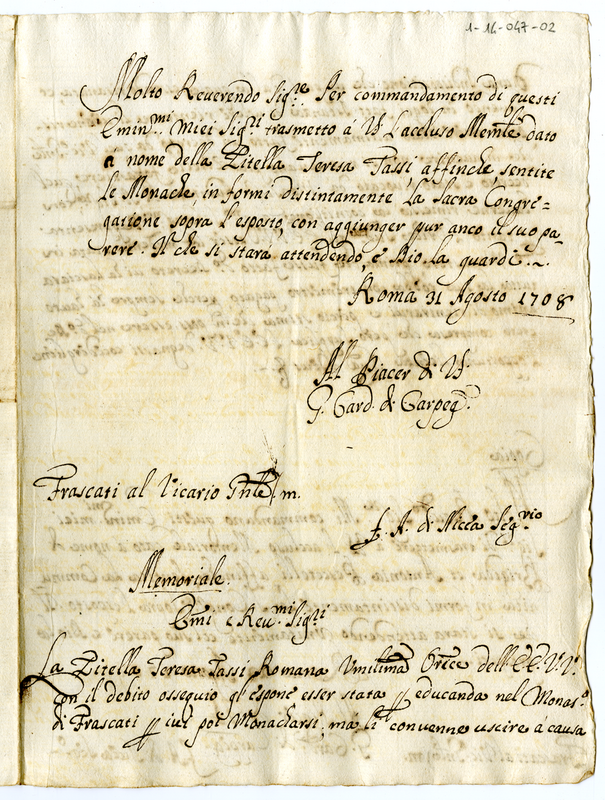 1-14-047-02
Molto Reverendo Sig.re Per commandamento di questi
Emin.mi miei Sig.ri trasmetto á VS l'accluso Memle dato
á nome della Zitella Teresa Tassi affinche, sentite
le Monache informi distintamente la Sacra Congre=
gatione sopra l'esposto, con aggiunger pur anco il suo pa=
rere. Il che si stará attendendo, e Dio la guardi.
Roma 31 Agosto 1708
Al Piacer di VS
G. Card. di Carpeg.
Frascati al Vicario Gnle
A. di Nicea Seg.rio
Memoriale.
Emi e Reu.mi Sig.ri
La Zitella Teresa Tassi Romana Umilma Orce dell'EE. VV.
con il debito ossequio gl'espone esser stata p educanda nel Monas.o
di Frascati p ivi poi Monacharsi, má li convenne uscire á causa